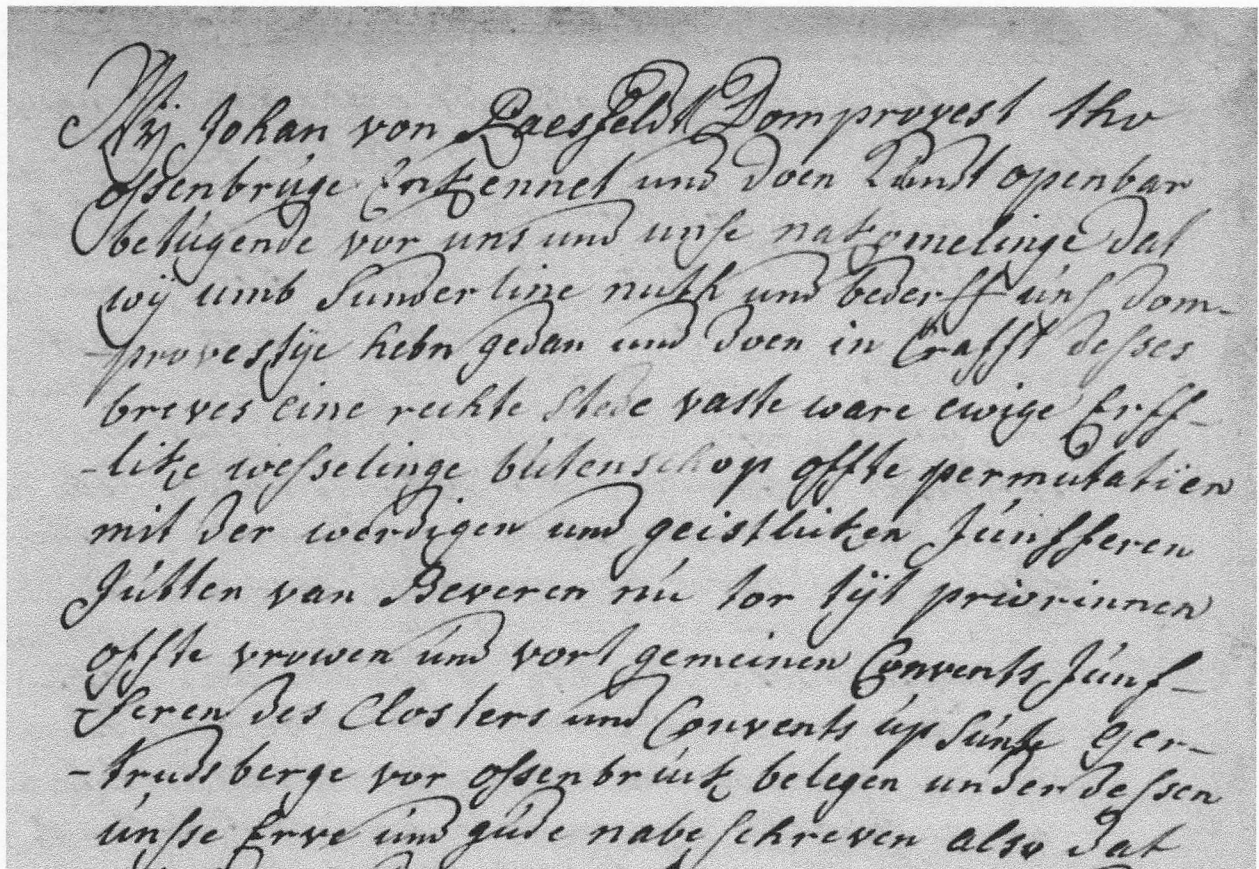 Wij Johan von Raesfeldt Domprovest tho
Ossenbrúge Enkennet und doen Kúndt openbar
betúgende vor uns und unse nakomelinge dat
wÿ umb Sunderline nuth und bederff úns dom-
-provestÿe hebn gedan und doen in Crafft desses
breves eine rechte Stede vaste ware ewige Erff-
-like wesselinge bútenschop offte permutatiën
mit der werdigen und geistliken Júnfferen
Jútten van Beveren nú tor tÿt priorinnen
offte vrowen und vort gemeinen Convents Júnf-
-feren des Closters und Convents úp Súnte Ger-
-trudsberge vor Ossenbrúck belegen under dessen
únsse Erve und gúde nabeschreven also dat